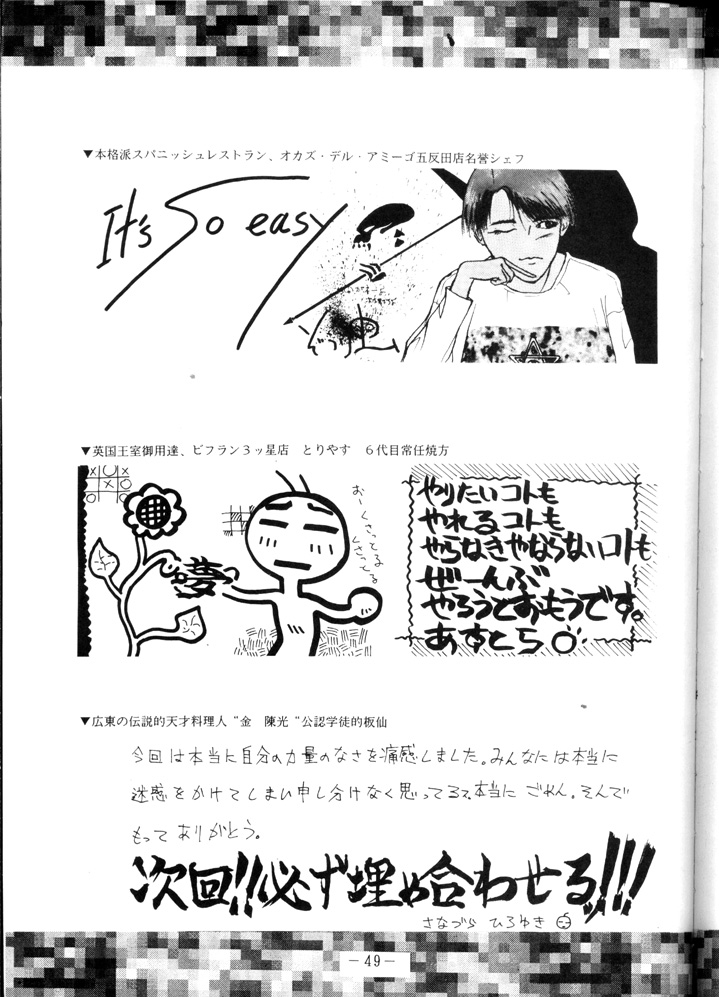 ▼本格派スパニッシュレストラン、オカズ・デル・アミーゴ五反田店名誉シェフ
It's So easy
▼英国王室御用達、ビフラン3ッ星店 とりやす 6代目常任焼方
x O x
x O
O O
夢
おーくさってる
くさってる
やりたいコトも
やれるコトも
やらなきゃならないコトも
ぜーんぶ
やろうとおもうです。
あすとら
▼広東の伝説的天才料理人“金 陳光“公認学徒的板仙
今回は本当に自分の力量のなさを痛感しました。みんなには本当に
迷惑をかけてしまい申し分けなく思ってるで本当に ごめん。そんで
もって ありがとう。
次回!!必ず埋め合わせるッ!!!
さなづら ひろゆき
－49－